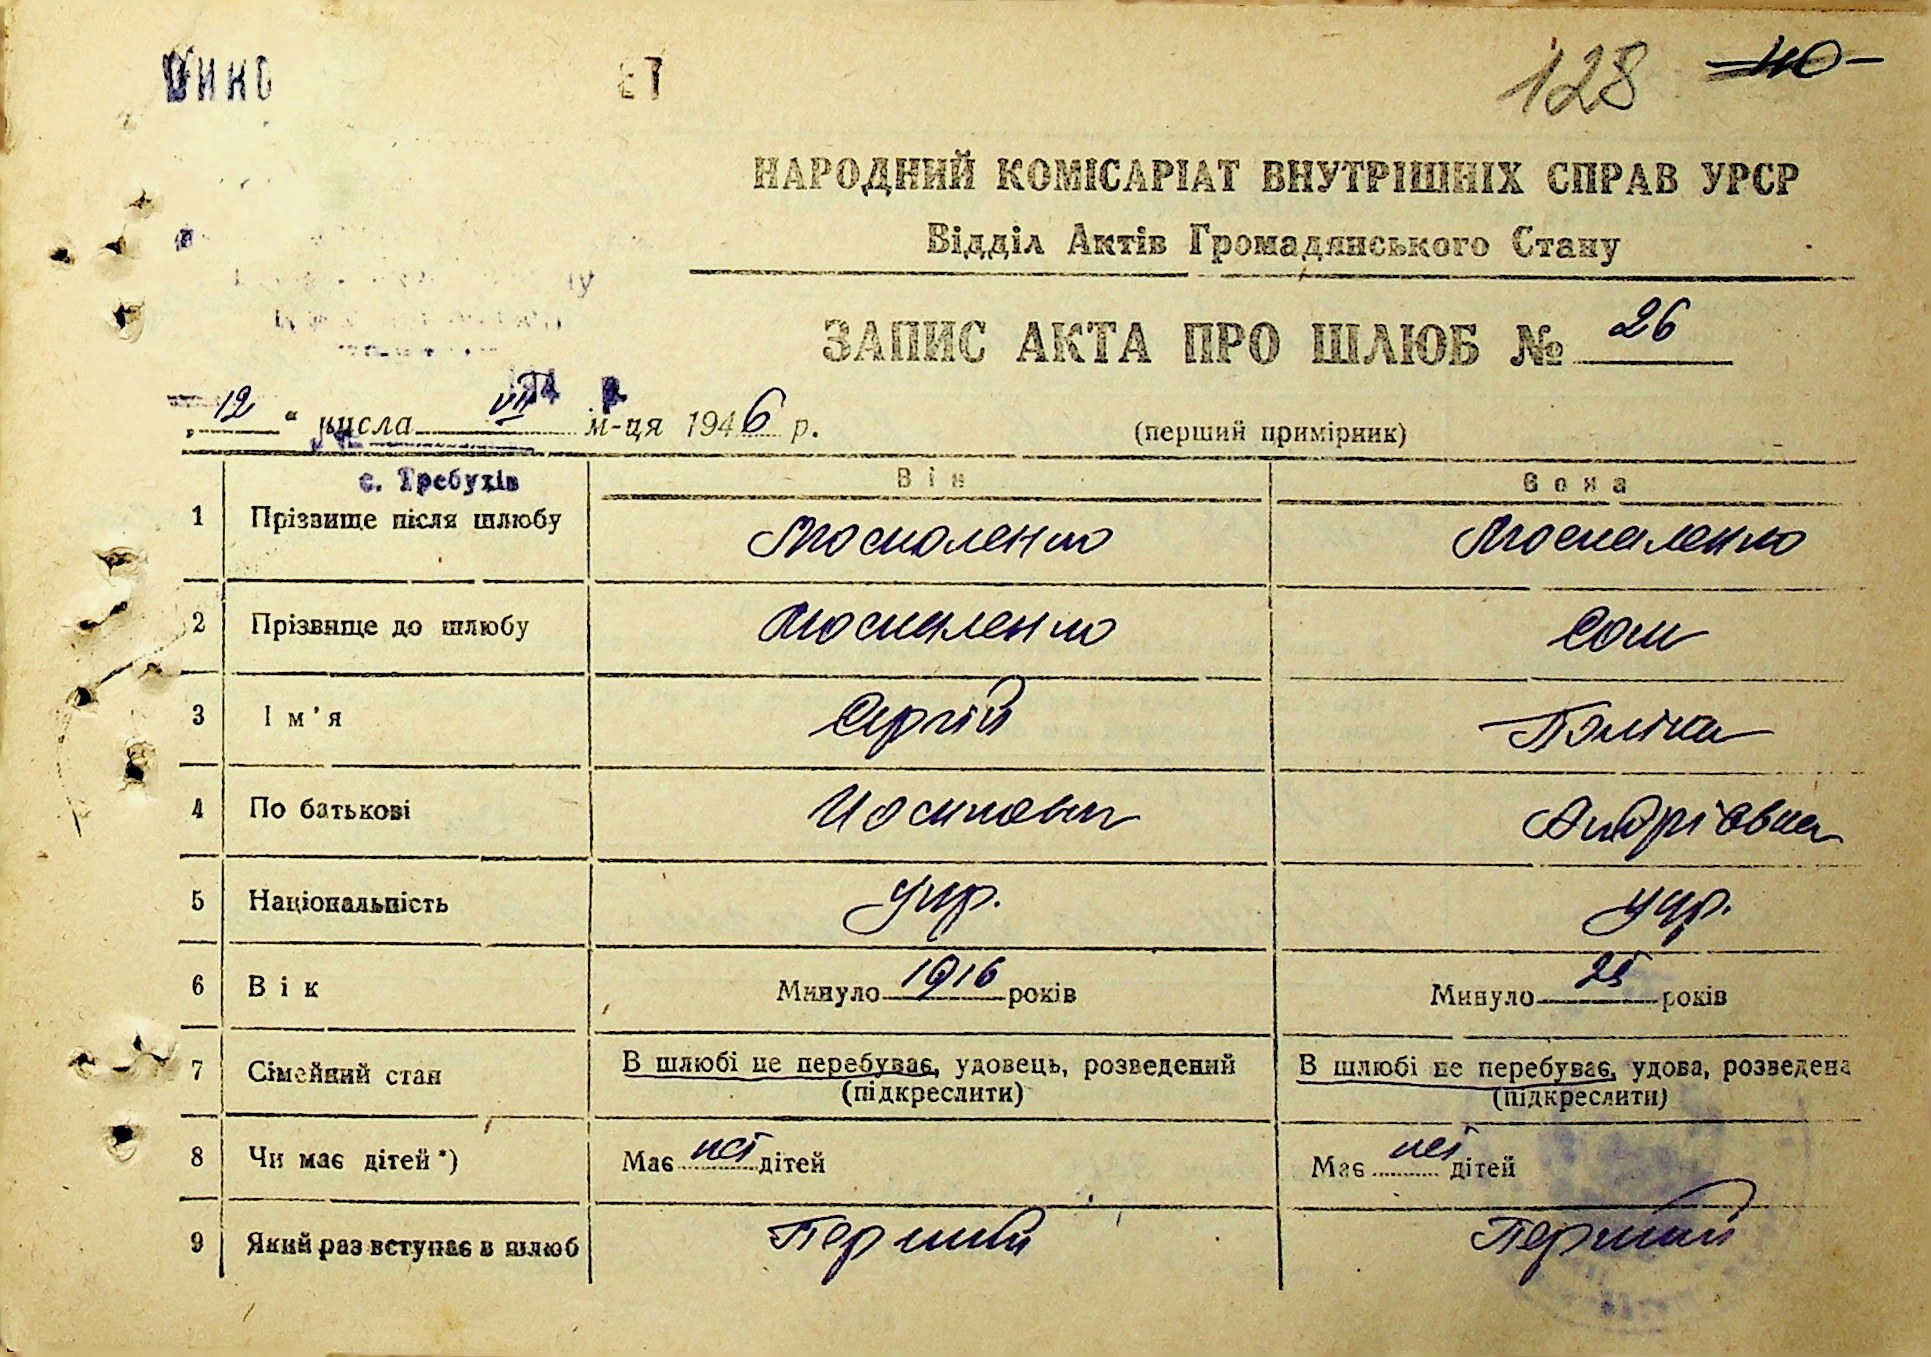 128 110
НАРОДНИЙ КОМІСАРІАТ ВНУТРІШНІХ СПРАВ УРСР
Відділ Актів Громадянського Стану
ЗАПИС АКТА ПРО ШЛЮБ № 26
„12“ числа VII м-ця 1946 р. (перший примірник)
с. Требухів
Він Вона
1 Прізвище після шлюбу Москаленко Москаленко
2 Прізвище до шлюбу Москаленко Сом
3 Ім'я Сергій Поліна
4 По батькові Иосипович Андріївна
5 Національність укр. укр.
6 Вік Минуло 1916 років Минуло 25 років
7 Сімейний стан В шлюбі не перебуває, удовець, розведений В шлюбі не перебуває, удова, розведена
(підкреслити) (підкреслити)
8 Чи має дітей*) Має неї дітей Має неї дітей
9 Який раз вступає в шлюб Перший Перший